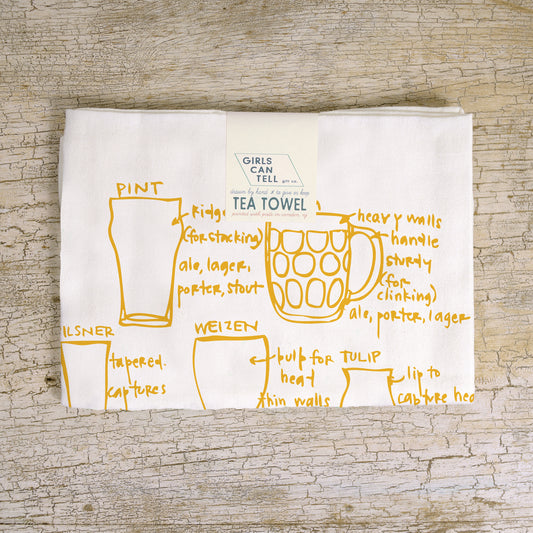 GIRLS
CAN
TELL
gift co.
drawn by hand to give or keep
TEA TOWEL
PINT
Ridg
(for stacking)
ale, lager,
porter, stout
heavy walls
handle
sturdy
(for
clinking)
ale, porter, lager
ILSNER
tapered.
captures
WEIZEN
bulb for
heat
thin walls
TULIP
lip to
capture hea